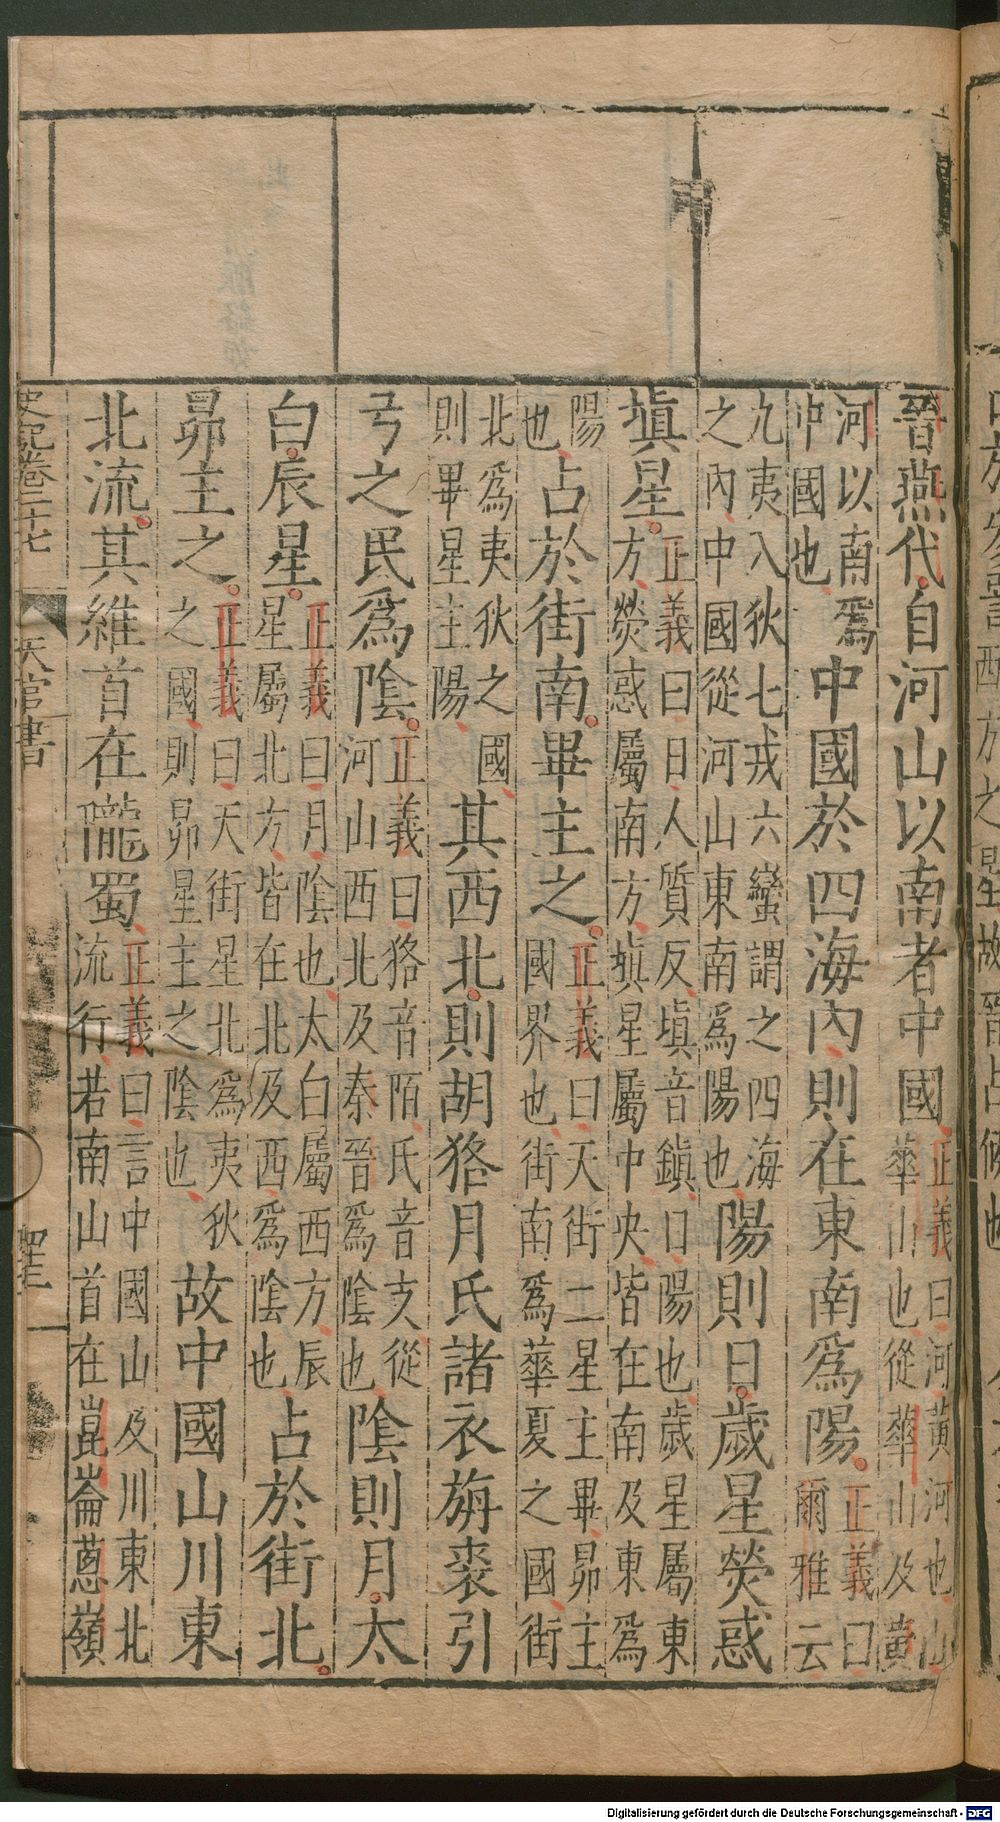 晉燕代自河山以南者中國正義曰河黃河也山華山也從華山及黃
河以南爲中國也中國於四海內則在東南爲陽正義曰爾雅云
九夷八狄七戎六蠻謂之四海之內中國從河山東南爲陽也陽則日歲星熒惑
塡星正義曰日人質反塡音鎮日陽也歲星屬東方熒惑屬南方塡星屬中央皆在南及東爲
陽也占於街南畢主之正義曰天街二星主畢昴主國界也街南爲華夏之國街
北爲夷狄之國則畢星主陽其西北則胡狢月氏諸衣旃裘引
弓之民爲陰正義曰狢音陌氏音支從河山西北及秦晉爲陰也陰則月太
白辰星正義曰月陰也太白屬西方辰星屬北方皆在北及西爲陰也占於街北
昴主之正義曰天街星北爲夷狄之國則昴星主之陰也故中國山川東
北流其維首在隴蜀正義曰言中國山及川東北流行若南山首在崑崙蔥嶺
史記卷二十七 天官書
Digitalisierung gefördert durch die Deutsche Forschungsgemeinschaft - DFG